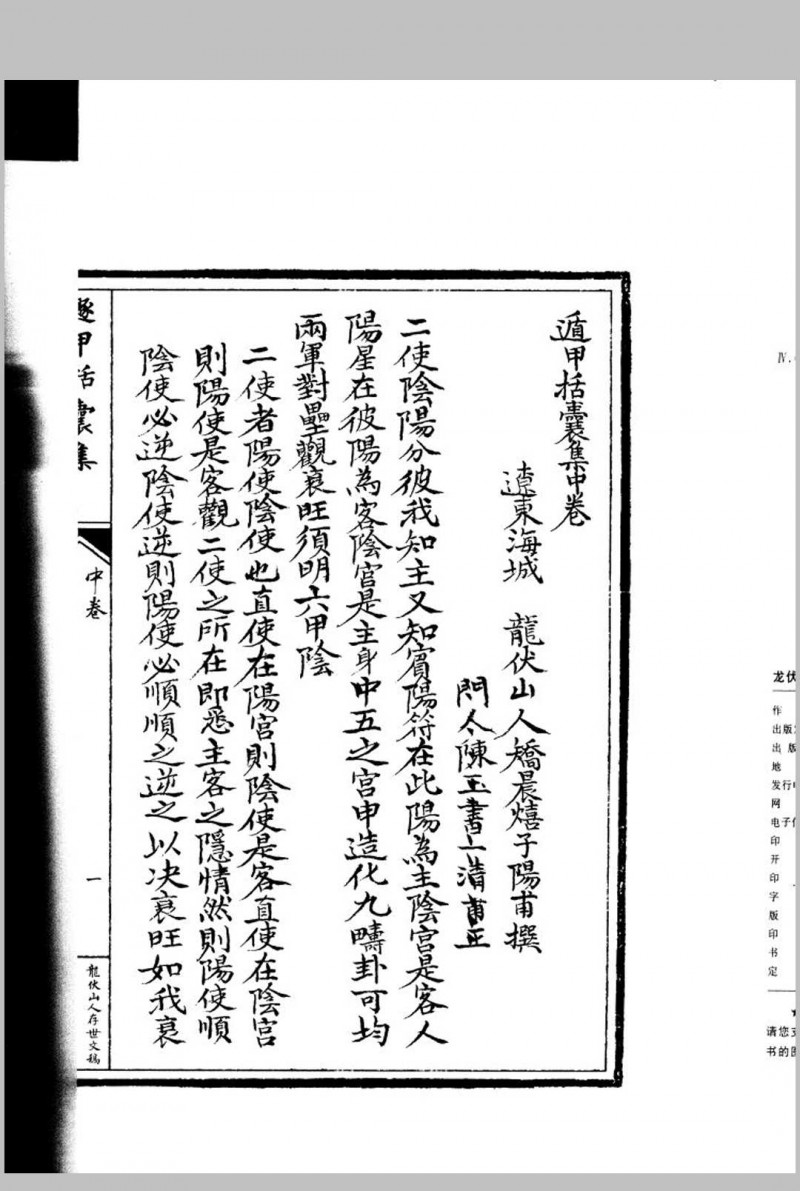 遁甲括囊集中卷
遼東海城　龍伏山人矯晨熺子陽甫撰
門人陳玉書一清甫正
二使陰陽分彼我知主又知賓陽符在此陽為主陰宮是客人
陽星在彼陽為客陰宮是主身中五之宮申造化九疇卦可均
兩軍對壘觀衰旺須明六甲陰
二使者陽使陰使也直使在陽宮則陰使是客直使在陰宮
則陽使是客觀二使之所在即悉主客之隱情然則陽使順
陰使必逆陰使逆則陽使必順順之逆之以決衰旺如我衰
遯甲括囊集
中卷
一
龍伏山人存世文稿
Ⅳ.
龙伏
作
出版
出 版
地
发行
网
电子
印
开
印
字
版
印
书
定
请您
书的